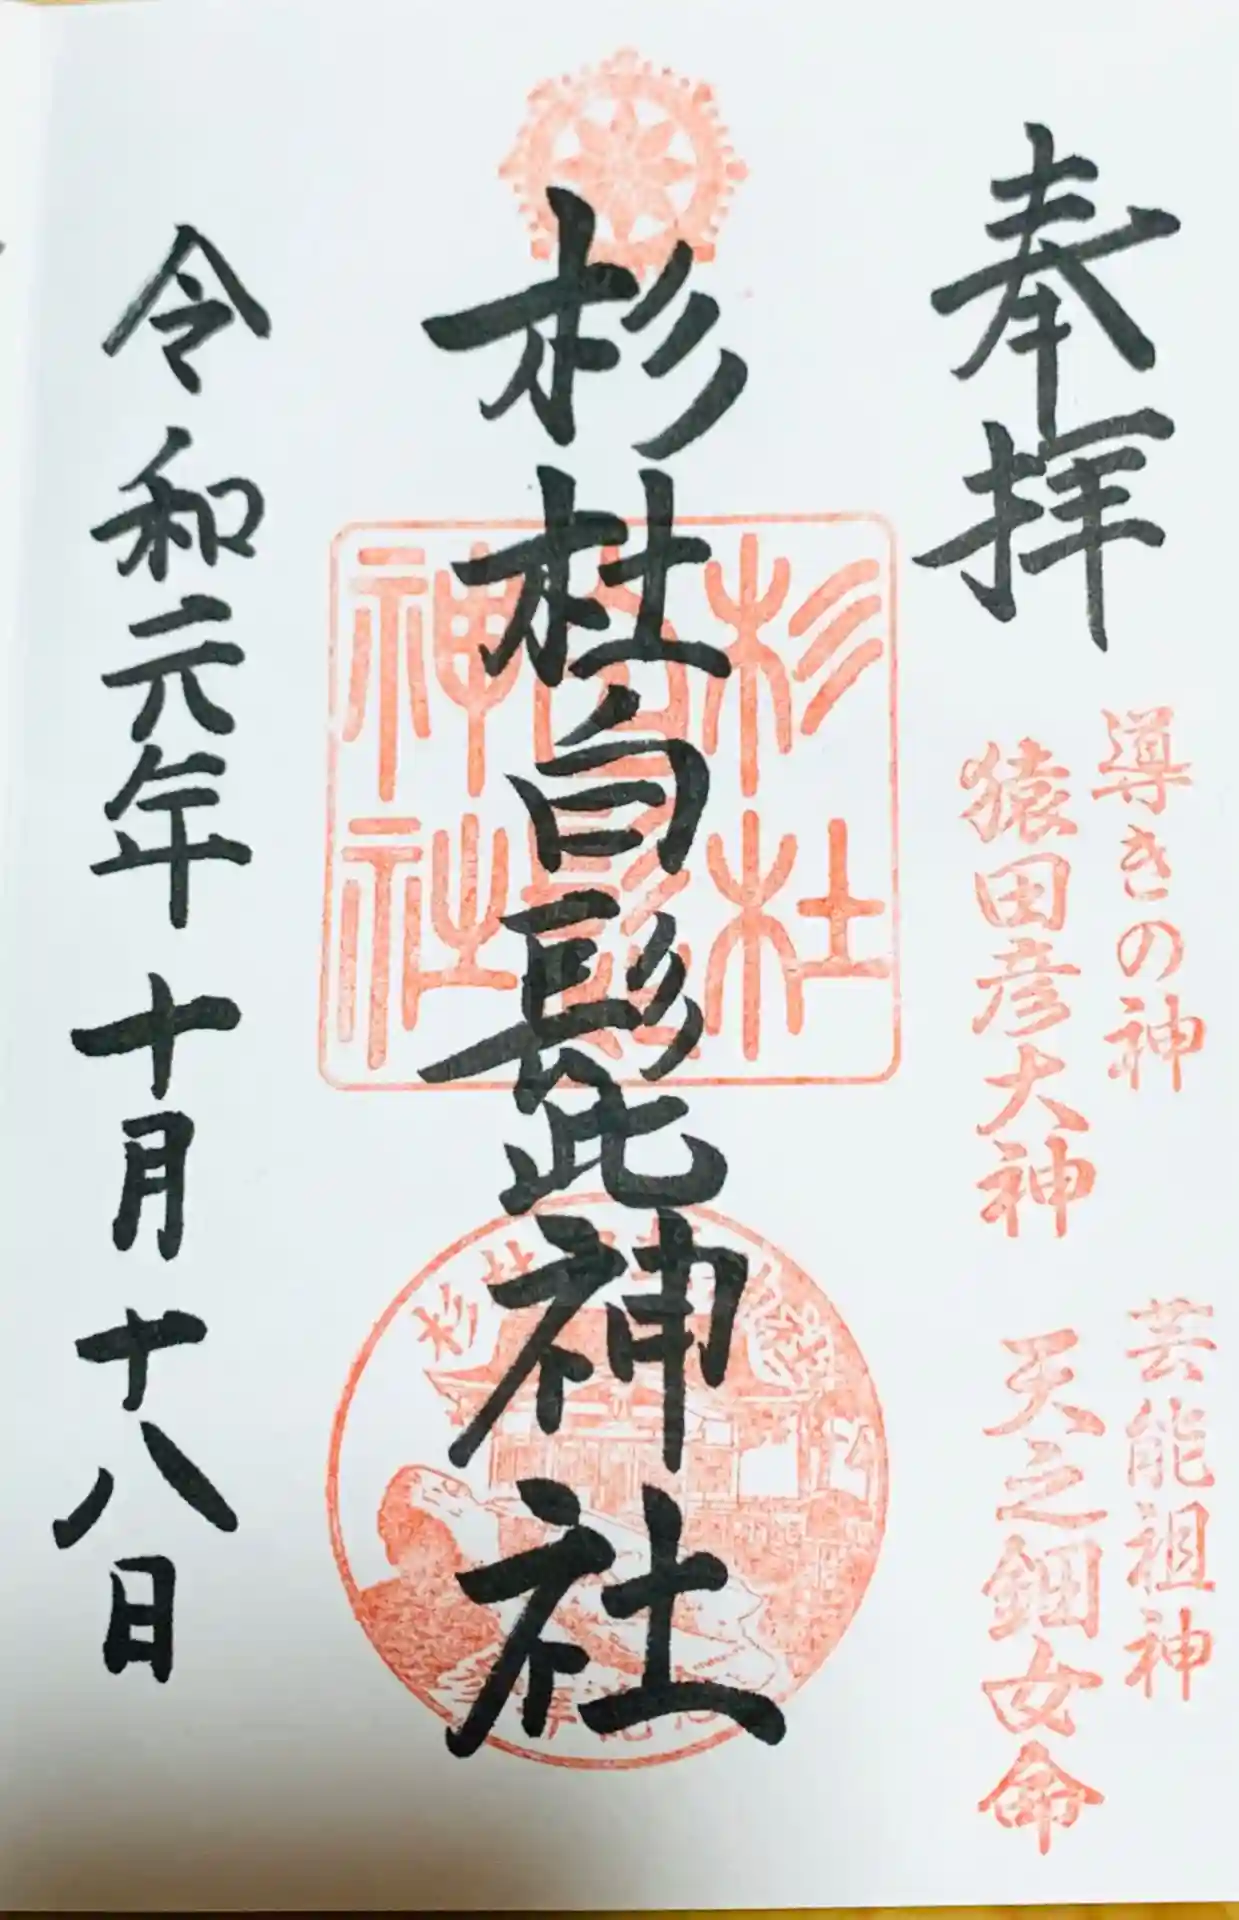 奉拝
導きの神
猿田彦大神
芸能祖神
天之鈿女命
杉杜白髭神社
杉杜白髭神社
令和元年十月十八日